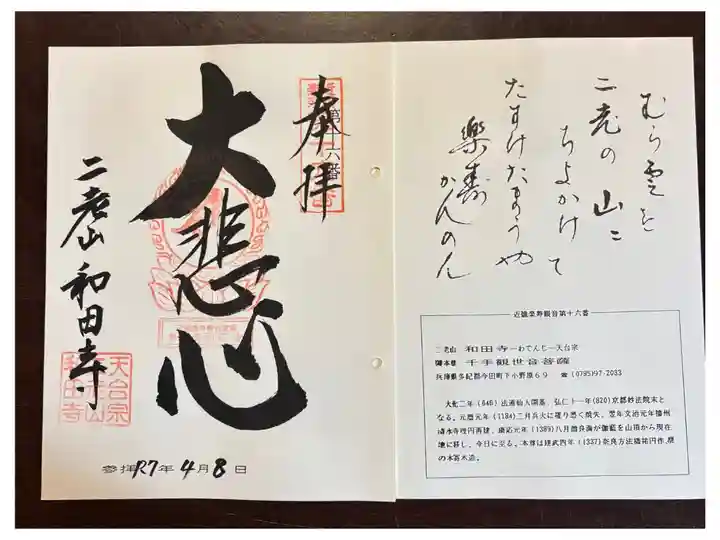 奉拝
第十六番
大悲心
二老山 和田寺
天台宗
二老山
和田寺
参拝R7年4月8日
むら雲を
二老の山に
ちよかけて
たすけたまうや
楽寿かんのん
近畿楽寿観音第十六番
二老山 和田寺―わでんじ―天台宗
御本尊 千手観世音菩薩
兵庫県多紀郡今田町下小野原69 ☎(0795)97-2033
大化二年(646)法道仙人開基、弘仁十一年(820)京都妙法院末と
なる。元暦元年(1184)二月兵火に罹り悉く焼失、翌年文治元年播州
清水寺理円再建、康応元年(1389)八月酋良海が伽藍を山頂から現在
地に移し、今日に至る。本尊は建武四年(1337)奈良方法橋祐円作、榧
の木寄木造。